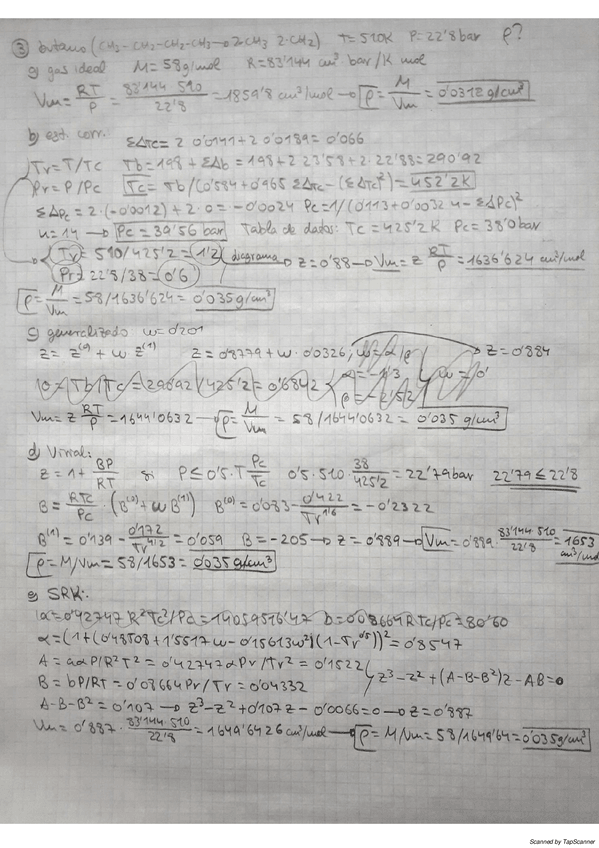 ③ butano (CH3-CH2-CH2-CH3 → 2·CH3 2·CH2) T=510K P=22'8 bar ρ?
a) gas ideal M=58g/mol R=83'144 cm³ bar/K mol
Vm = RT/P = 83'144·510/22'8 = 1859'8 cm³/mol → ρ = M/Vm = 0'0312 g/cm³
b) est. corr.: ΣΔTc = 2·0'0141+2·0'0189 = 0'066
Tr=T/Tc Tb=198+ΣΔb = 198+2·23'58+2·22'88 = 290'92
Pr=P/Pc Tc = Tb/(0'584+0'965 ΣΔTc-(ΣΔTc)²) = 452'2K
ΣΔPc = 2·(-0'0012)+2·0 = -0'0024 Pc=1/(0'113+0'0032 n-ΣΔPc)²
n=14 → Pc=39'56 bar Tabla de datos: Tc=425'2K Pc=38'0bar
Tr= 510/425'2=1'2 diagrama → z=0'88 → Vm=z RT/P = 1636'624 cm³/mol
Pr= 22'8/38=0'6
ρ = M/Vm = 58/1636'624 = 0'035 g/cm³
c) generalizado w=0'201
z = z⁽⁰⁾ + w z⁽¹⁾ z=0'8779+w·0'0326; → z=0'884
Vm = z RT/P = 1644'0632 → ρ = M/Vm = 58/1644'0632 = 0'035 g/cm³
d) Virial:
z=1+ BP/RT si P ≤ 0'5·T Pc/Tc 0'5·510·38/425'2 = 22'79bar 22'79 ≤ 22'8
B = RTc/Pc · (B⁽⁰⁾+w B⁽¹⁾) B⁽⁰⁾=0'083 - 0'422/Tr^1'6 = -0'2322
B⁽¹⁾=0'139 - 0'172/Tr^4'2 = 0'059 B=-205 → z=0'889 → Vm=0'889·83'144·510/22'8 = 1653 cm³/mol
ρ = M/Vm = 58/1653 = 0'035g/cm³
e) SRK:
a=0'42747 R²Tc²/Pc = 14059516'47 b=0'08664RTc/Pc = 80'60
α=(1+(0'48508+1'5517w-0'15613w²)(1-Tr^0'5))² = 0'8547
A = aαP/R²T² = 0'42747αPr/Tr² = 0'1522
B = bP/RT = 0'08664Pr/Tr = 0'04332 z³-z²+(A-B-B²)z-AB=0
A-B-B² = 0'107 → z³-z²+0'107z-0'0066=0 → z=0'887
Vm = 0'887·83'144·510/22'8 = 1649'6426 cm³/mol → ρ = M/Vm = 58/1649'64 = 0'035g/cm³
Scanned by TapScanner